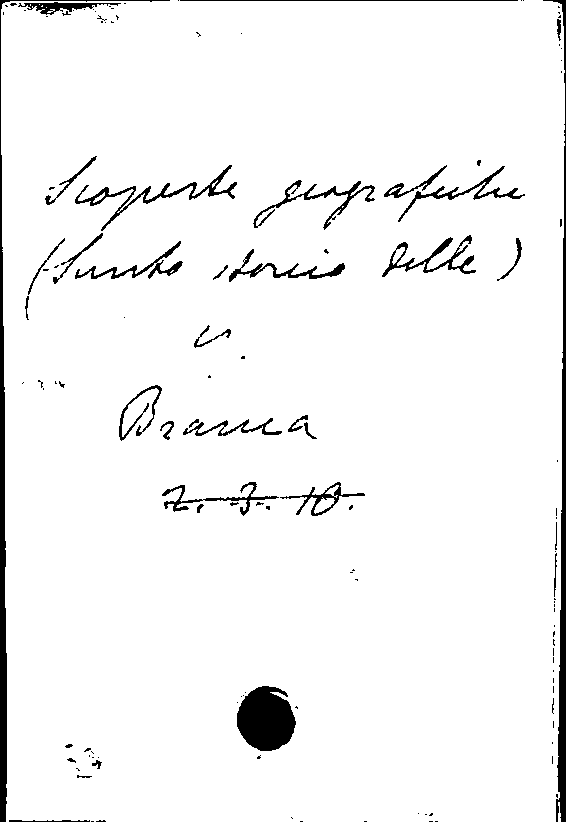 Scoperte geografiche
(Sunto storico delle)
v.
Branca
Z. 3. 10.